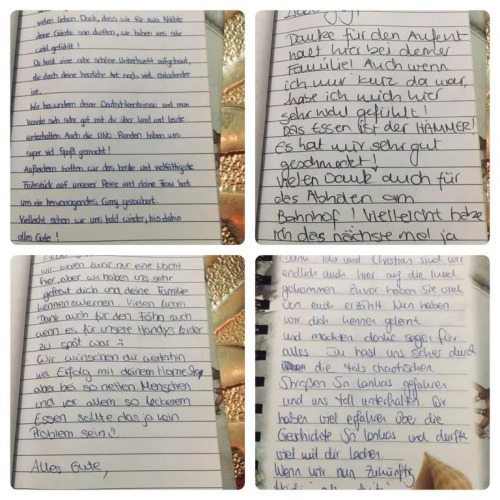 vielen lieben Dank, dass wir für zwei Nächte
deine Gäste sein durften, wir haben uns sehr
wohl gefühlt!
Du hast eine sehr schöne Unterkunft aufgebaut,
die durch deine herzliche Art noch viel einladender
ist.
Wir bewundern deine Deutschkenntnisse und man
konnte sich sehr gut mit dir über Land und Leute
unterhalten. Auch die UNO Runden haben uns
super viel Spaß gemacht!
Außerdem hatten wir das beste und vielfältigste
Frühstück auf unserer Reise und deine Frau hat
uns ein hervorragendes Curry gezaubert.
Vielleicht sehen wir uns bald wieder, bis dahin
alles Gute!
Danke für den Aufent
halt hier bei deiner
Familie! Auch wenn
ich nur kurz da war,
habe ich mich hier
sehr wohl gefühlt!
Das Essen ist der HAMMER!
Es hat mir sehr gut
geschmeckt!
Vielen Dank auch für
das Abholen am
Bahnhof! Vielleicht habe
ich das nächste mal ja
wir waren zwar nur eine Nacht
hier, aber wir haben uns sehr
gefreut dich und deine Familie
kennenzulernen. Vielen lieben
Dank auch für den Föhn auch
wenn es für unsere Handys leider
zu spät war :-)
Wir wünschen dir weiterhin
viel Erfolg mit deinem Home Stay
aber bei so netten Menschen
und vor allem so leckerem
Essen sollte das ja kein
Problem sein :)
Alles Gute,
und Christian sind wir
endlich auch hier auf die Insel
gekommen. Zuvor haben Sie viel
von euch erzählt. Nun haben
wir dich kennen gelernt
und möchten danke sagen für
alles. Du hast uns sicher durch
die teils chaotischen
Straßen Sri Lankas gefahren
und uns toll unterhalten. Wir
haben viel erfahren über die
Geschichte Sri Lankas und durften
viel mit dir lachen.
Wenn wir nun zukünftig